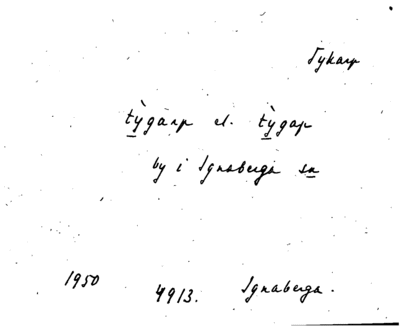 Tykarp
tỳgàrp el. tỳgap
by i Ignaberga sn
1950 4913. Ignaberga.